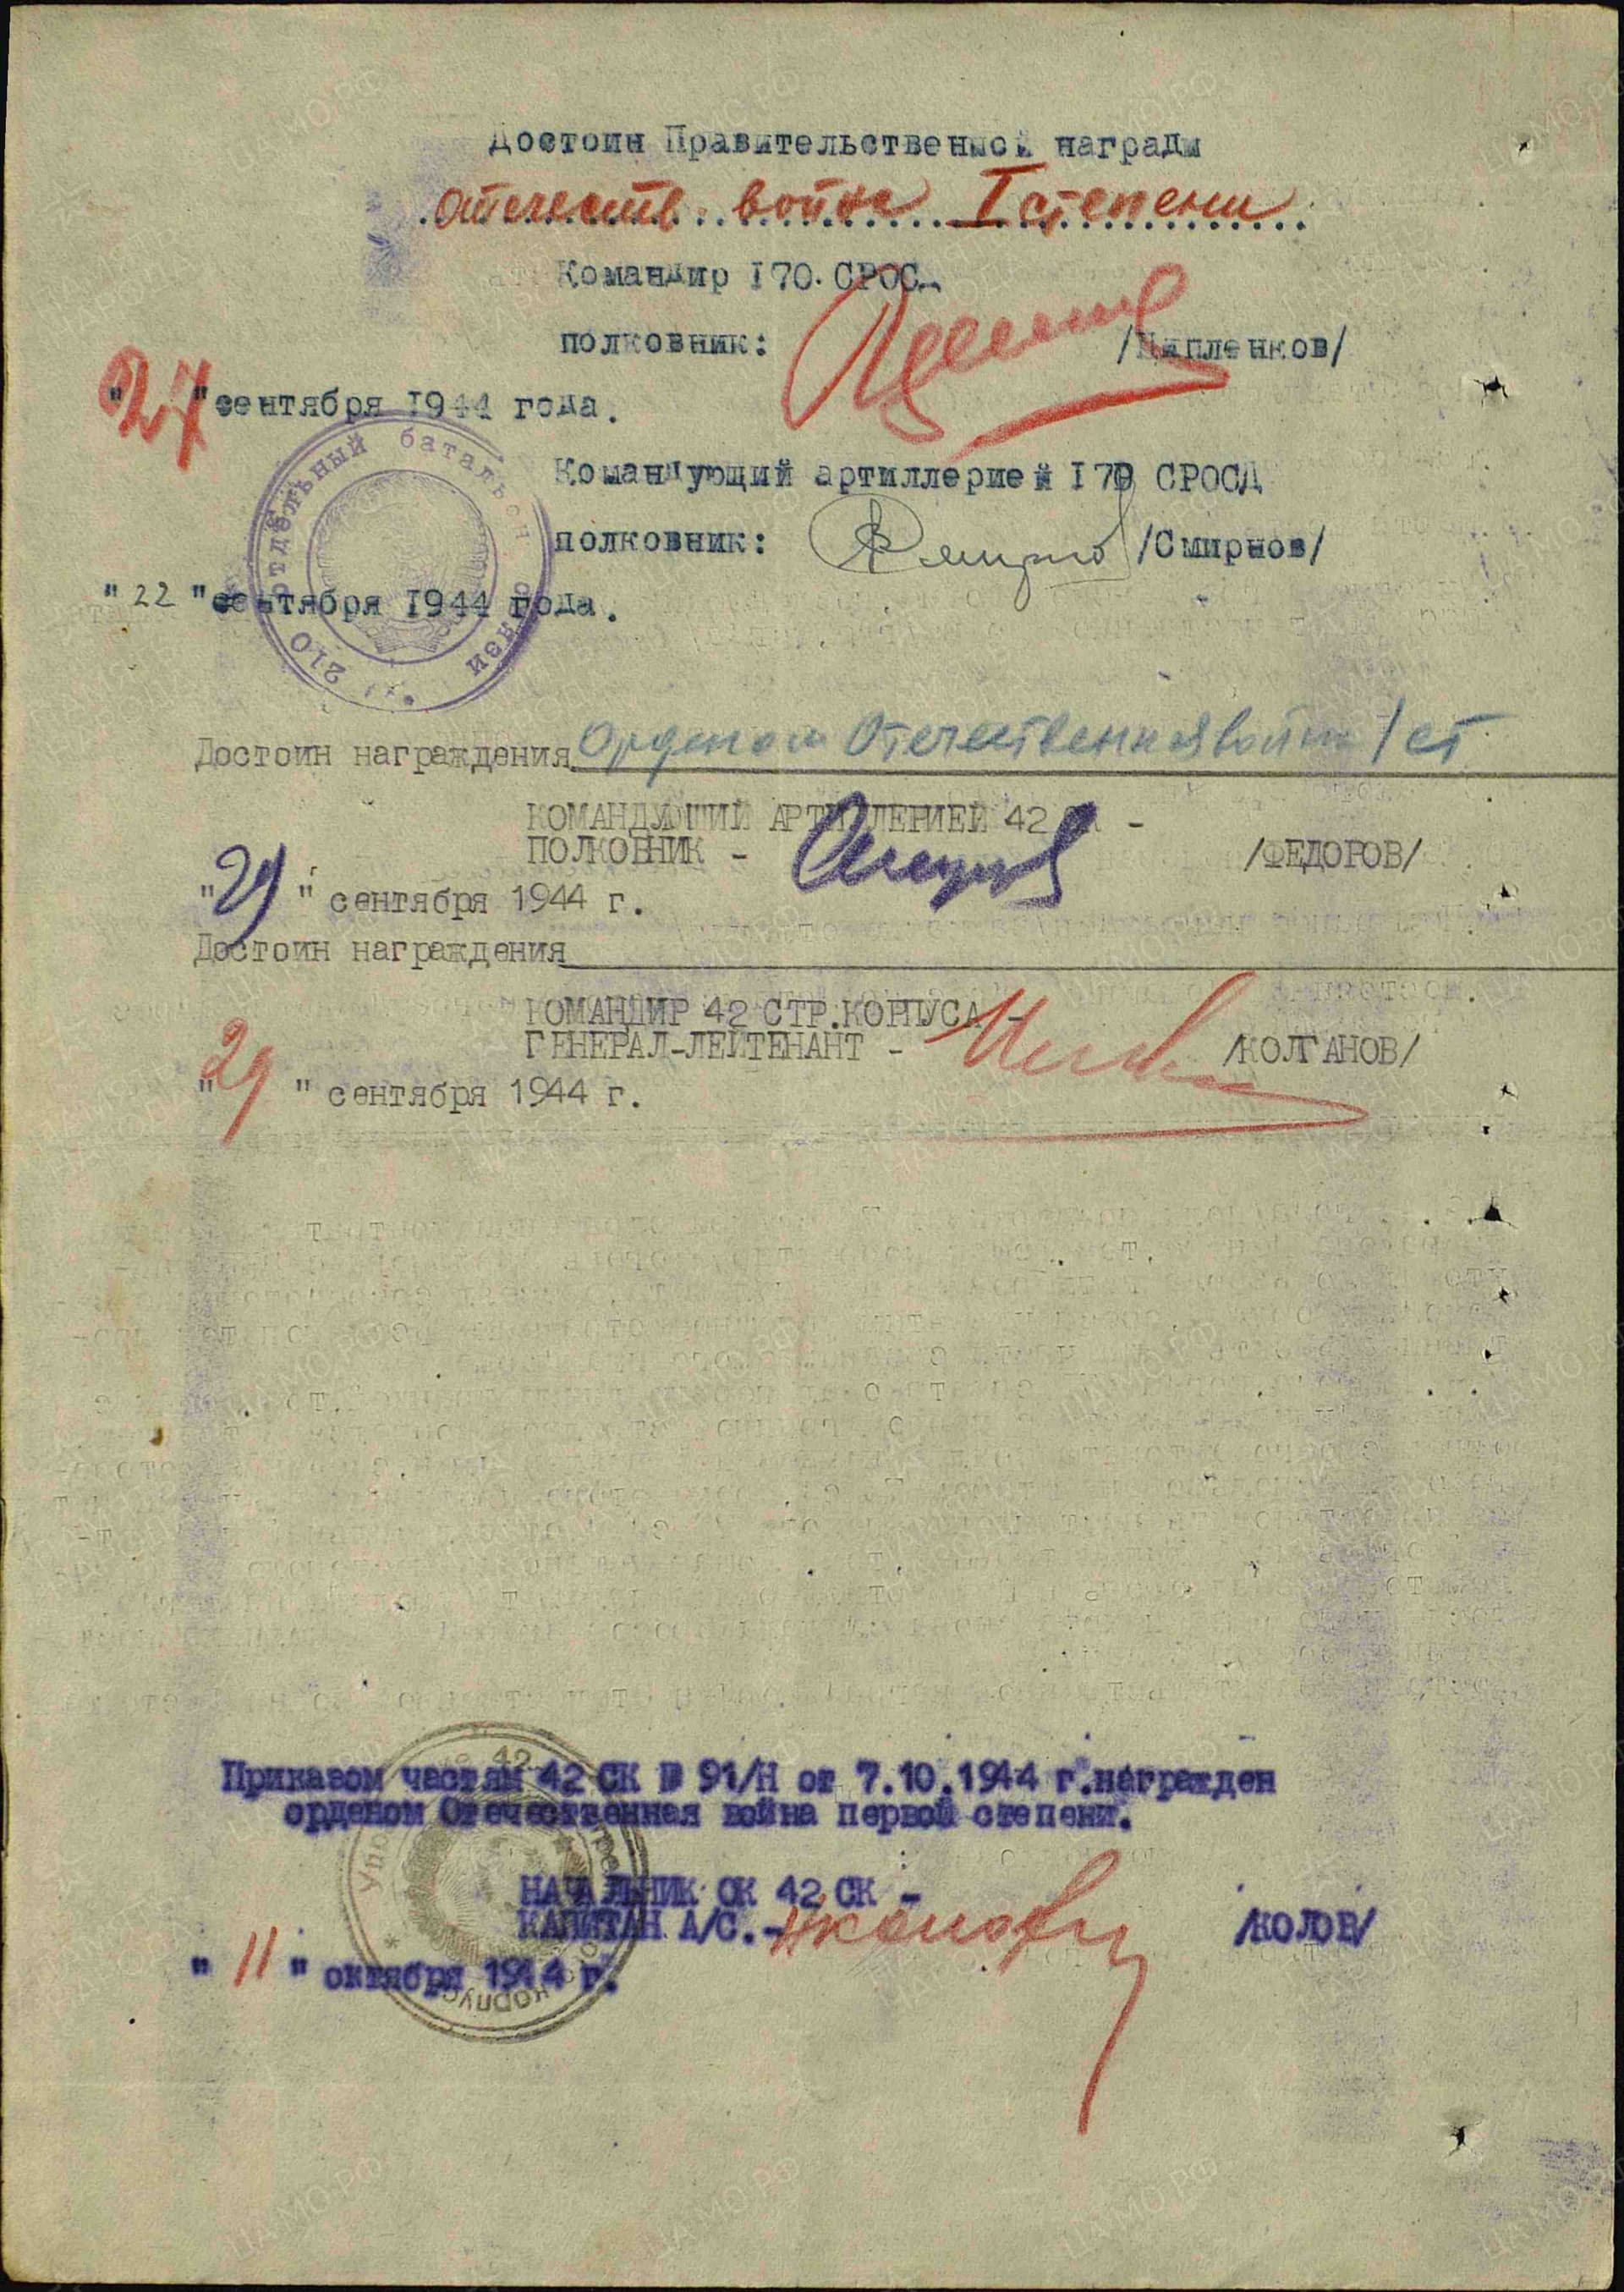 Достоин Правительственной награды
отечеств. война I степени
Командир I70. СРОС
полковник: /Цыпленков/
"27" сентября 1944 года.
Командующий артиллерией I70 СРОСД
полковник: Смирнов /Смирнов/
"22" сентября 1944 года.
210 отдельный батальон связи
Достоин награждения орденом Отечественная война I ст
КОМАНДУЮЩИЙ АРТИЛЛЕРИЕЙ 42 СК -
ПОЛКОВНИК - /ФЕДОРОВ/
"29" сентября 1944 г.
Достоин награждения
КОМАНДИР 42 СТР.КОРПУСА -
ГЕНЕРАЛ-ЛЕЙТЕНАНТ - /КОЛГАНОВ/
"29" сентября 1944 г.
Приказом частям 42 СК № 91/Н от 7.10.1944 г.награжден
орденом Отечественная война первой степени.
НАЧАЛЬНИК ОК 42 СК -
КАПИТАН А/С. - /КОЛОВ/
"11" октября 1944 г.